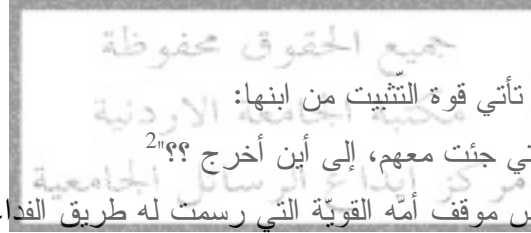 جميع الحقوق محفوظة
تأتي قوة التّثبيت من ابنها:
مكتبة الجامعة الاردنية
جئت معهم، إلى أين أخرج ؟؟"2
مركز ايداع الرسائل الجامعية
موقف أمّه القويّة التي رسمت له طريق